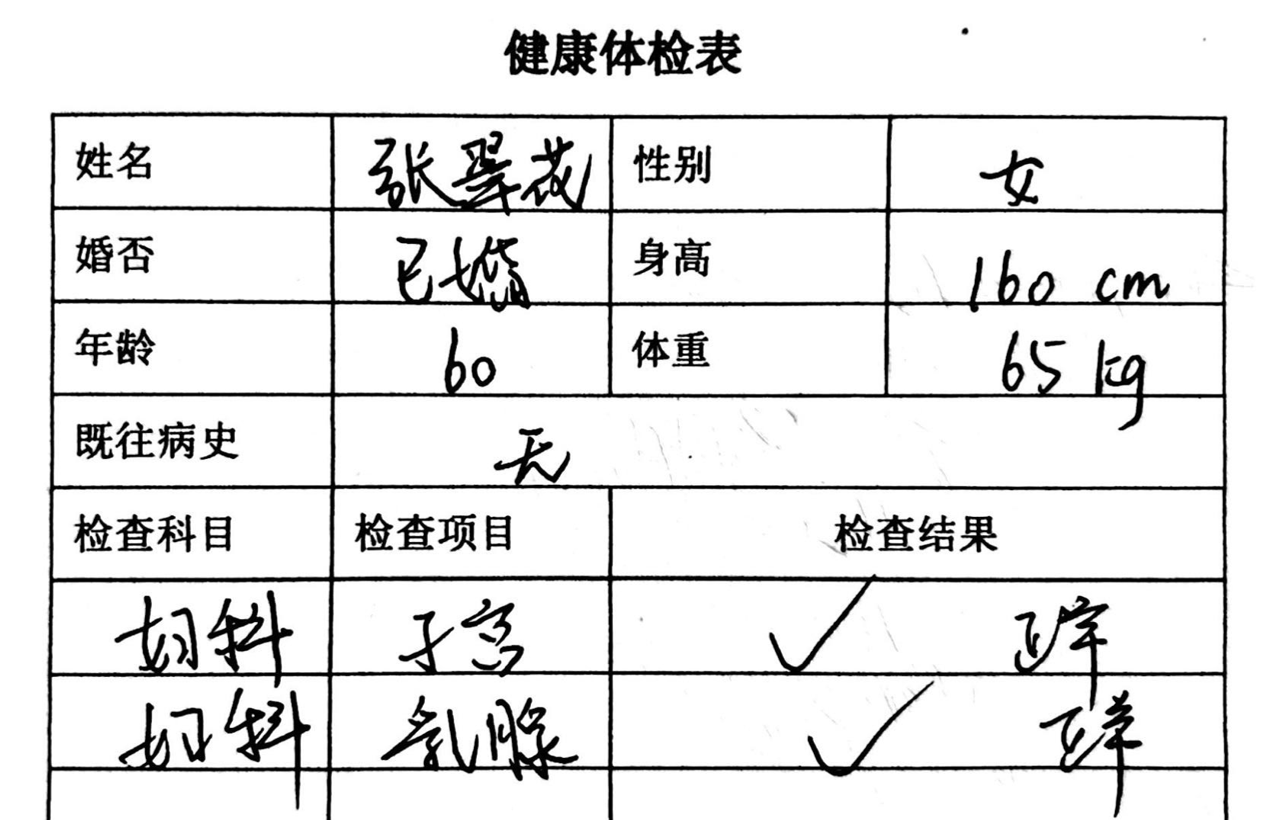 健康体检表
姓名 张翠花 性别 女
婚否 已婚 身高 160 cm
年龄 60 体重 65 kg
既往病史 无
检查科目 检查项目 检查结果
妇科 子宫 ✓ 正常
妇科 乳腺 ✓ 正常